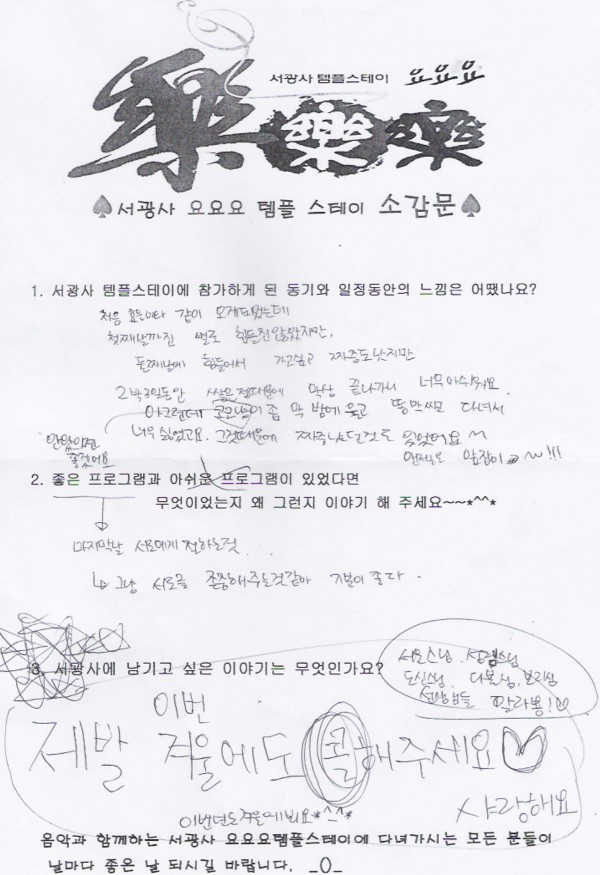 서광사 템플스테이 요요요
樂 樂 樂
♠서광사 요요요 템플 스테이 소감문♠
1. 서광사 템플스테이에 참가하게 된 동기와 일정동안의 느낌은 어땠나요?
처음 같이 오게되었는데
첫째날까진 별로 힘들진않았지만,
둘째날에 힘들어서 가고싶고 짜증도났지만
2박3일동안 쌓은 정때문에 막상 끝나가니 너무아쉬워요.
아그런데 좀 막 밤에 울고 다녀서
너무 싫었고요. 그것때문에 짜증나는것도 있었어요
안왔으면
좋겠어요
2. 좋은 프로그램과 아쉬운 프로그램이 있었다면
무엇이었는지 왜 그런지 이야기 해 주세요~~*^^*
마지막날 서로에게 전하는것
↳ 그냥 서로를 존중해주는것같아 기분이 좋다.
3. 서광사에 남기고 싶은 이야기는 무엇인가요?
선생님들 알라뷰!♡
이번
제발 겨울에도 콜해주세요♡
사랑해요
이번년도겨울에봐요*^^*
음악과 함께하는 서광사 요요요템플스테이에 다녀가시는 모든 분들이
날마다 좋은 날 되시길 바랍니다. _0_